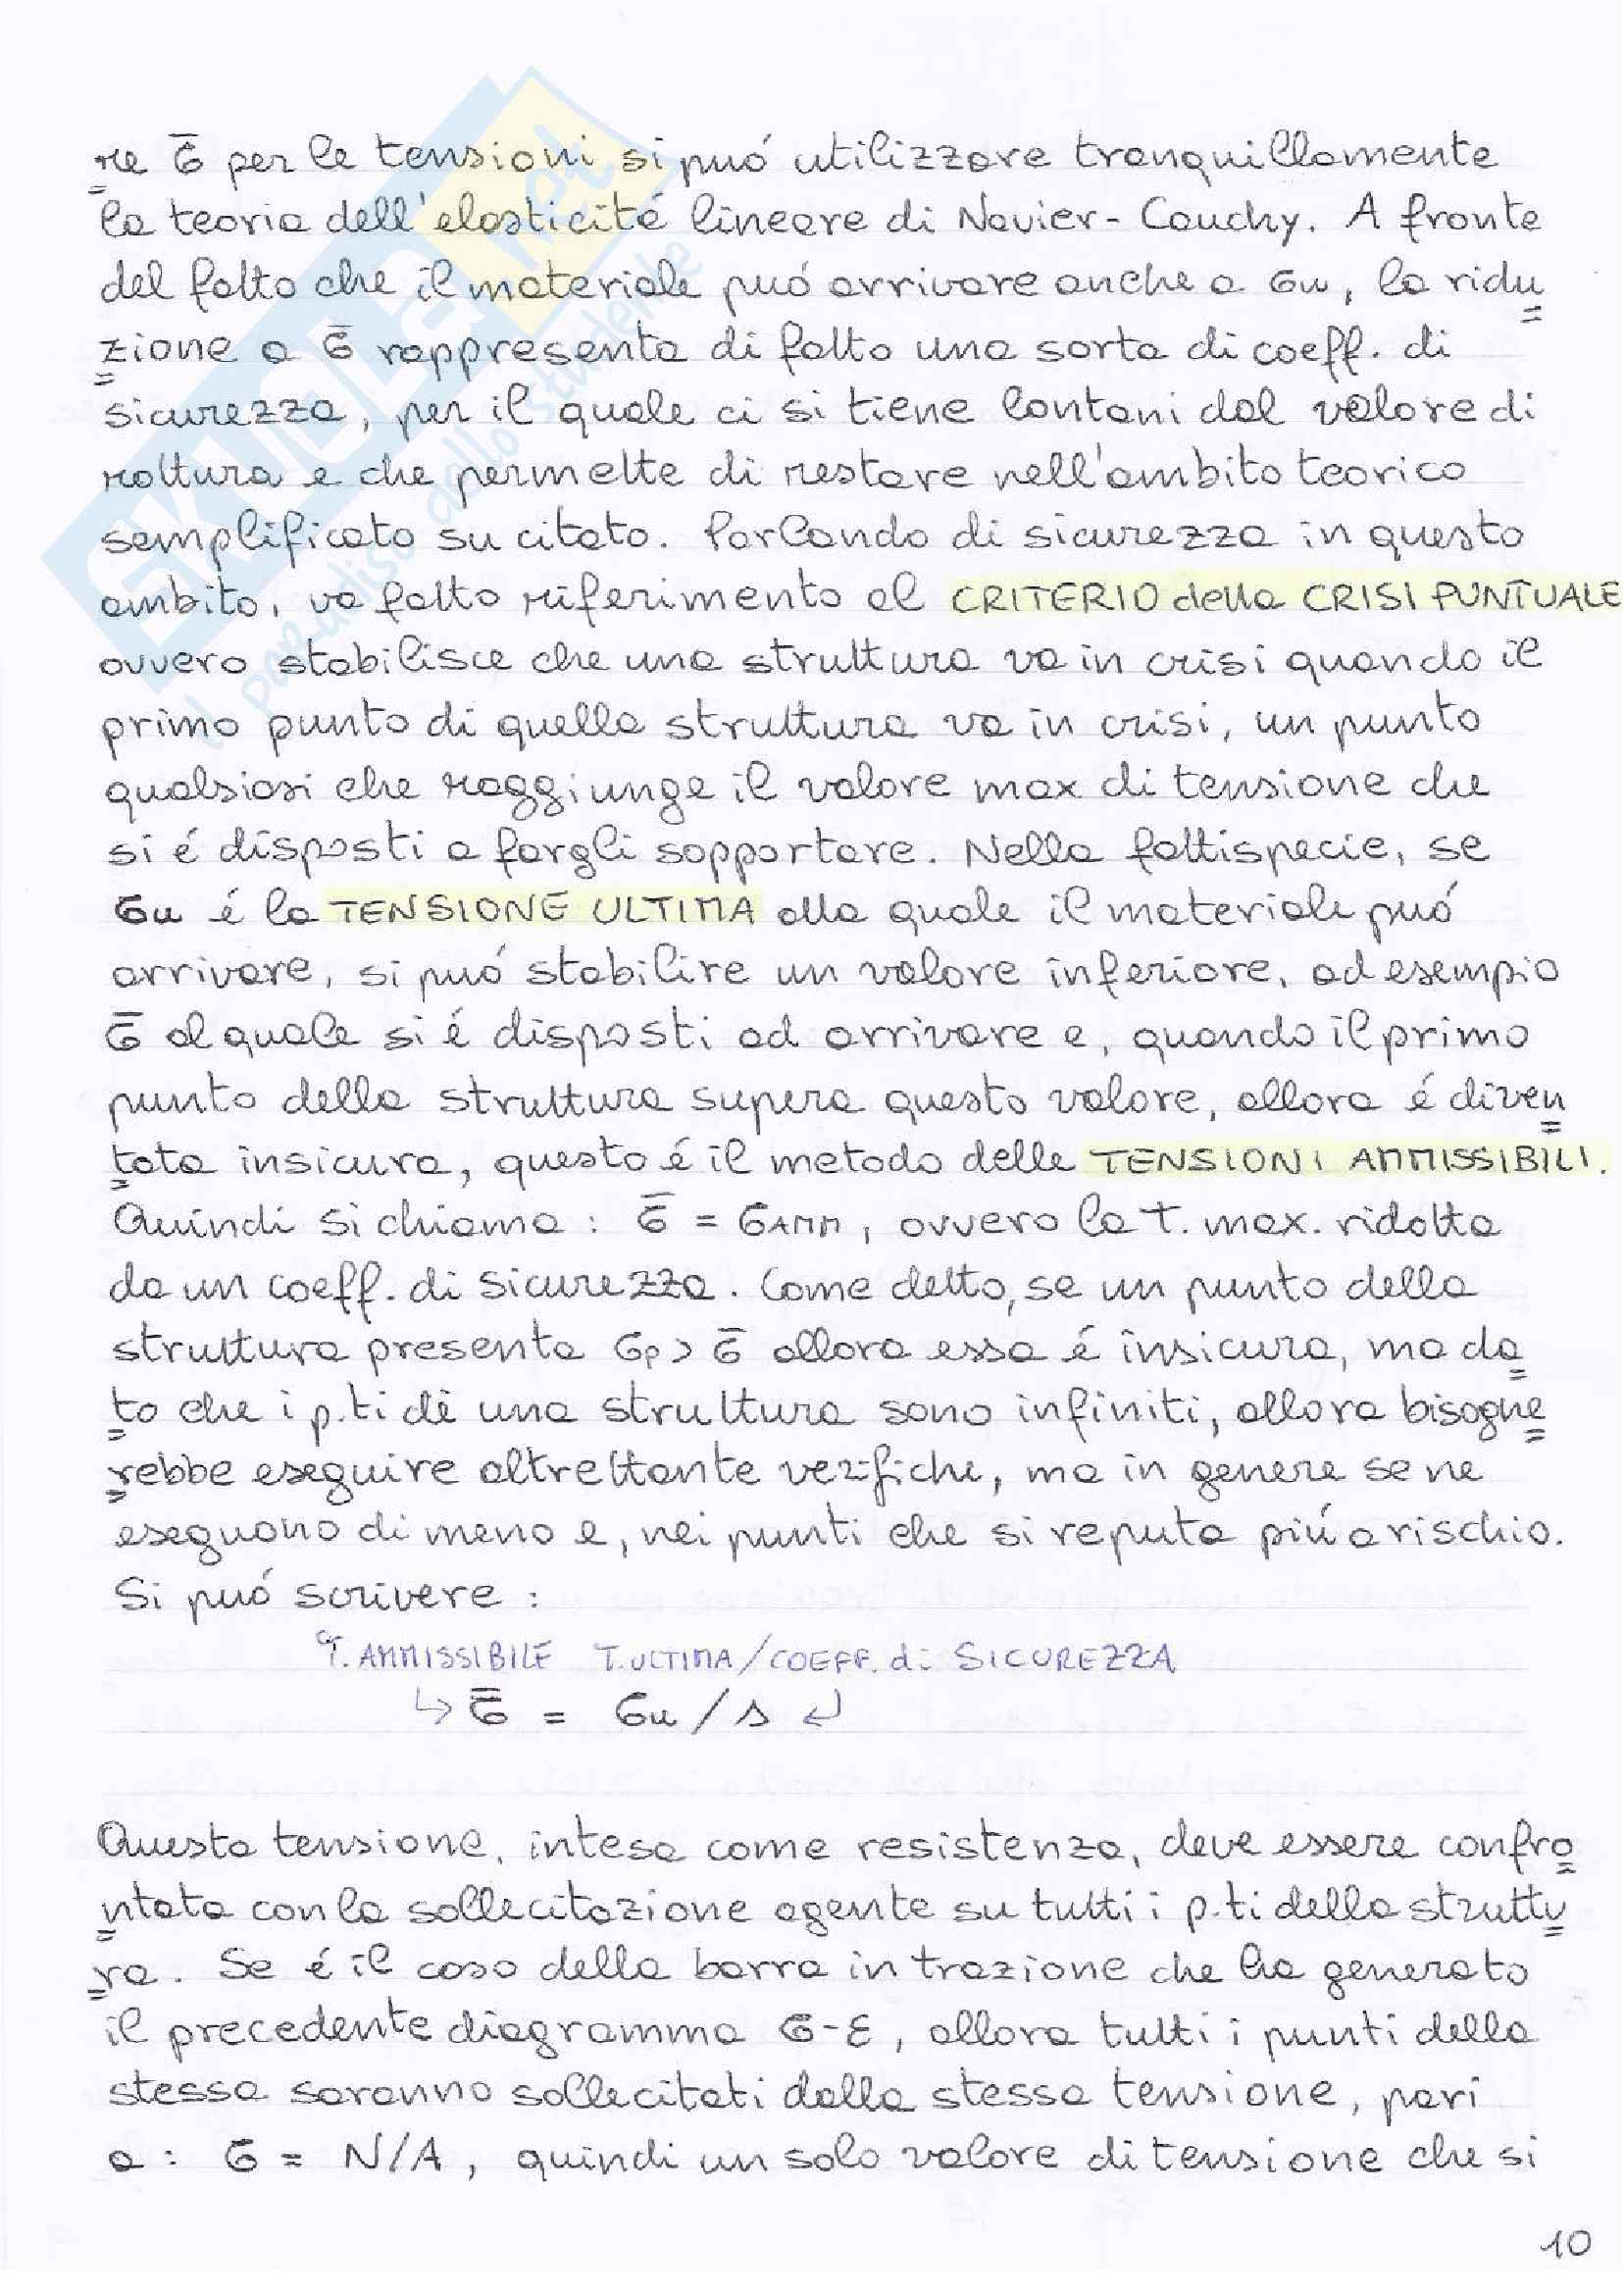 re σ̄ per le tensioni si puó utilizzare tranquillamente
la teoria dell'elasticitá lineare di Navier-Cauchy. A fronte
del fatto che il materiale puó arrivare anche a σu, la ridu
zione a σ̄ rappresenta di fatto una sorta di coeff. di
sicurezza, per il quale ci si tiene lontani dal valore di
rottura e che permette di restare nell'ambito teorico
semplificato su citato. Parlando di sicurezza in questo
ambito, va fatto riferimento al CRITERIO della CRISI PUNTUALE
ovvero stabilisce che una struttura va in crisi quando il
primo punto di quella struttura va in crisi, un punto
qualsiasi che raggiunge il valore max di tensione che
si é disposti a fargli sopportare. Nella fattispecie, se
σu é la TENSIONE ULTIMA alla quale il materiale puó
arrivare, si puó stabilire un valore inferiore, ad esempio
σ̄ al quale si é disposti ad arrivare e, quando il primo
punto della struttura supera questo valore, allora é diven
tata insicura, questo é il metodo delle TENSIONI AMMISSIBILI.
Quindi si chiama : σ̄ = σAMM, ovvero la T. max. ridotta
da un coeff. di sicurezza. Come detto, se un punto della
struttura presenta σp > σ̄ allora essa é insicura, ma da
to che i p.ti di una struttura sono infiniti, allora bisogne
rebbe eseguire altrettante verifiche, ma in genere se ne
eseguono di meno e, nei punti che si reputa piú a rischio.
Si puó scrivere :
T. AMMISSIBILE T. ULTIMA/COEFF. di SICUREZZA
↳ σ̄ = σu / s ↲
Questa tensione, intesa come resistenza, deve essere confro
ntata con la sollecitazione agente su tutti i p.ti della struttu
ra. Se é il caso della barra in trazione che ha generato
il precedente diagramma σ-ε, allora tutti i punti della
stessa saranno sollecitati dalla stessa tensione, pari
a : σ = N/A, quindi un solo valore di tensione che si
10
SKUOLA.net
il paradiso dello studente